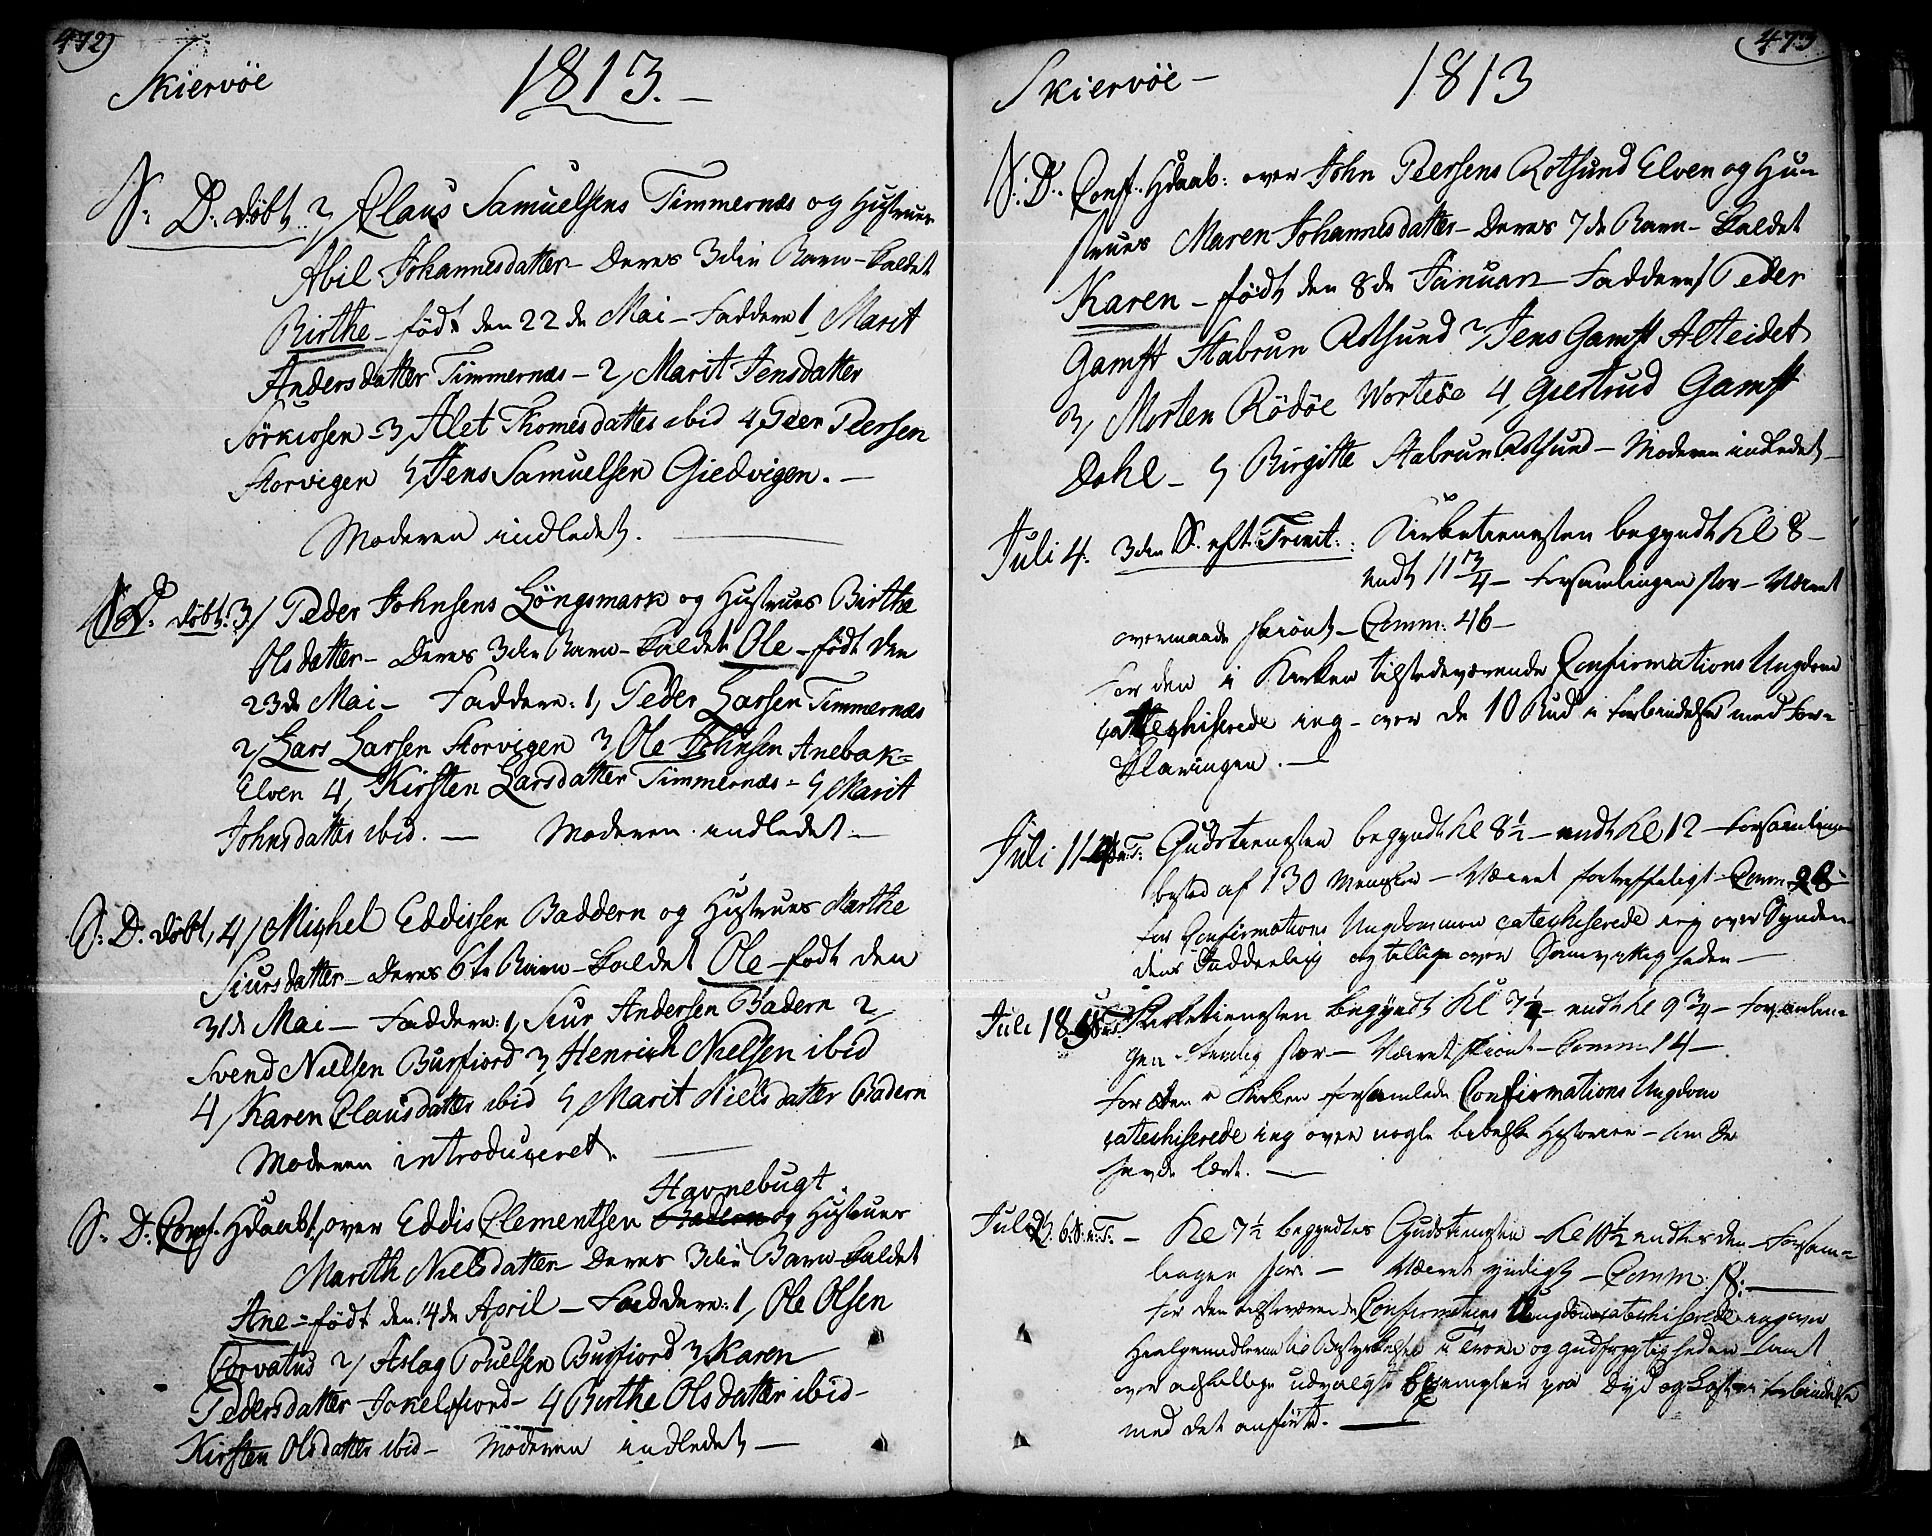 472)
Skiervöe 1813. –
S: D: döbt 2, Claus Samuelsens Timmernæs og Hustrues
Abil Johannesdatter – Deres 3die Barn – kaldet
Birthe – födt den 22de Mai – Faddere 1, Marit
Andersdatter Timmernæs – 2, Marit Jensdatter
Sörkiosen – 3, Alet Thomesdatter ibid 4, Peer Peersen
Storvigen 5, Jens Samuelsen Giedvigen. –
Moderen indledet.
S: D: döbt: 3/ Peder Johnsens Löngsmark og Hustrues Birthe
Olsdatter – Deres 3die Barn – kaldet Ole – födt den
23de Mai – Faddere: 1, Peder Larsen Timmernæs
2, Lars Larsen Storvigen 3, Ole Johnsen Anebak=
Elven 4, Kirsten Larsdatter Timmernæs – 5, Marit
Johnsdatter ibid. – Moderen indledet –
S: D: döbt, 4/ Michel Eddissen Baddern og Hustrues Marthe
Siursdatter – Deres 6te Barn – kaldet Ole – födt den
31de Mai – Faddere: 1, Siur Andersen Badern 2,
Svend Nielsen Burfiord 3, Henrich Nielsen ibid
4, Karen Clausdatter ibid 5, Marit Nielsdatter Badern
Moderen introduceret.
Havnebugt
S: D: Conf. Hdaabt, over Eddis Clementsen Badern og Hustrues
Marith Nielsdatter Deres 3die Barn kaldet
Ane – födt den 4de April – Faddere: 1, Ole Olsen
Corvatus 2, Aslag Pouelsen Burfiord 3, Karen
Pedersdatter Jokelfiord – 4 Birthe Olsdatter ibid –
Kirsten Olsdatter ibid – Moderen indledet –
473
Skiervöe – 1813
S: D: Conf: Hdaab: over John Peersens Rotsund Elven og Hu=
strues Maren Johannesdatter – Deres 7de Barn – kaldet
Karen – födt den 8de Januar – Faddere 1 Peder
Gamst Stabrun Rotsund 2, Jens Gamst Alteidet
3, Morten Rödöe Worteöe 4, Giertrud Gamst
Dahl – 5 Birgitte Stabrun Rotsund – Moderen indledet –
Juli 4. 3die S. eft: Trinit: Kirketienesten begyndt Kl 8 –
endt 11 3/4 – Forsamlingen stor – Væiret
overmaade skiönt – Comm: 46 –
For den i Kirken tilstedeværende Confirmations Ungdom
catechiserede ieg – over de 10 Bud i forbindelse med For=
klaringen. –
Juli 11 4 S: e: T: Gudstienesten begyndt Kl 8 1/2 – endt Kl 12 – Forsamlingen
bestod af 130 Mennesker – Væiret fortreffeligt – Comm 28 –
for Confirmations Ungdommen catechiserede ieg over Synden
dens og tillige over Samvittigheden –
Juli 18 5 S: e: T: Kirketienesten begyndt Kl 7 1/4 – endt Kl 9 3/4 – Forsamlin=
gen temelig stor – Væiret skiönt – Comm: 14 –
For den i Kirken forsamlede Confirmations Ungdom
catechiserede ieg over nogle bibelske Historier – som de
havde lært. –
Juli 25. 6. S: e: T: – Kl 7 1/2 begyndtes Gudstienesten – Kl 10 1/2 endtes den – Forsam=
lingen stor – Væiret yndigt – Comm: 18: –
For den tilstæværende Confirmations Ungdom catechiserede ieg over
Hielpemidlerne til Bestyrkelse i Troen og gudfrygtigheden – samt
over adskillige udvalgte Exempler paa dyd og Laster i forbindelse
med det anförte. –